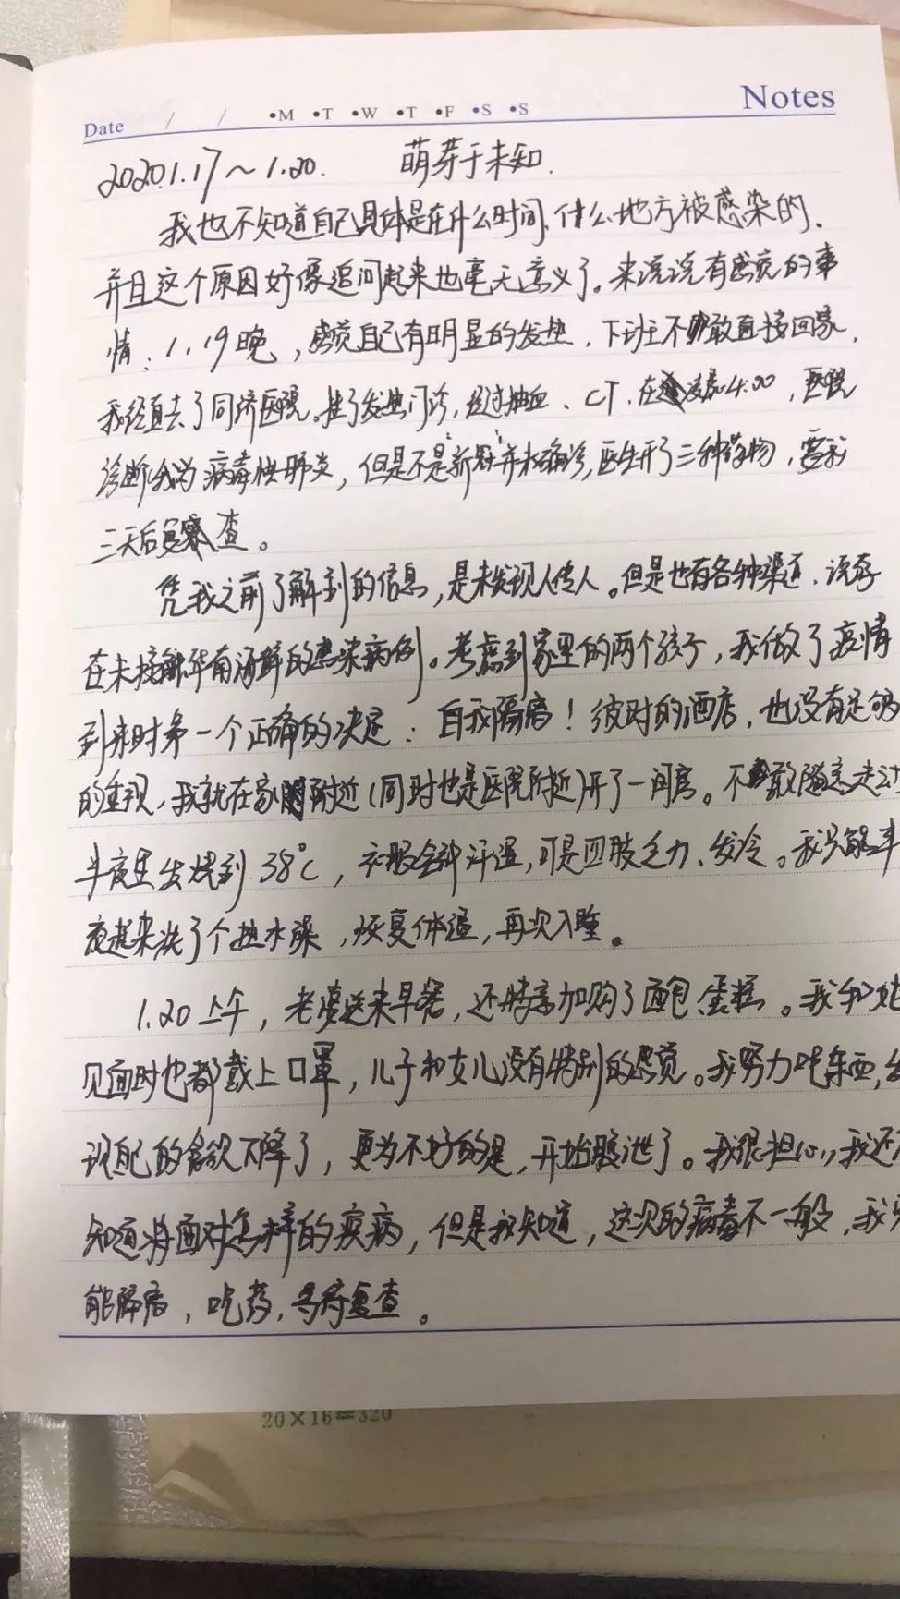 Notes
Date / / •M •T •W •T •F •S •S
2020.1.17～1.20. 萌芽于未知.
我也不知道自己具体是在什么时间、什么地方被感染的.
并且这个原因好像追问起来也毫无意义了。来说说有感觉的事
情：1.19晚，感觉自己有明显的发热，下班不敢直接回家，
我径直去了同济医院。挂了发热门诊，经过抽血、CT，在凌晨4:00，医院
诊断我为病毒性肺炎，但是不是"新冠"并未确诊，医生开了三种药物，要我
三天后复查。
凭我之前了解到的信息，是未发现人传人。但是也有各种渠道，说存
在未接触华南海鲜的感染病例。考虑到家里的两个孩子，我做了疫情
到来时第一个正确的决定：自我隔离！彼时的酒店，也没有足够
的重视，我就在家附近(同时也是医院附近)开了一间房。不敢随意走动
半夜里发烧到38℃，衣服全部汗湿，可是四肢乏力、发冷。我只能半
夜起来洗了个热水澡，恢复体温，再次入睡。
1.20上午，老婆送来早餐，还特意加购了面包、蛋糕。我和她
见面时也都戴上口罩，儿子和女儿没有特别的感觉。我努力吃东西，
自己的食欲下降了，更为不好的是，开始腹泄了。我很担心，我还不
知道将面对怎样的疾病，但是我知道，这次的病毒不一般，我只
能隔离，吃药，等待复查。
20×16=320